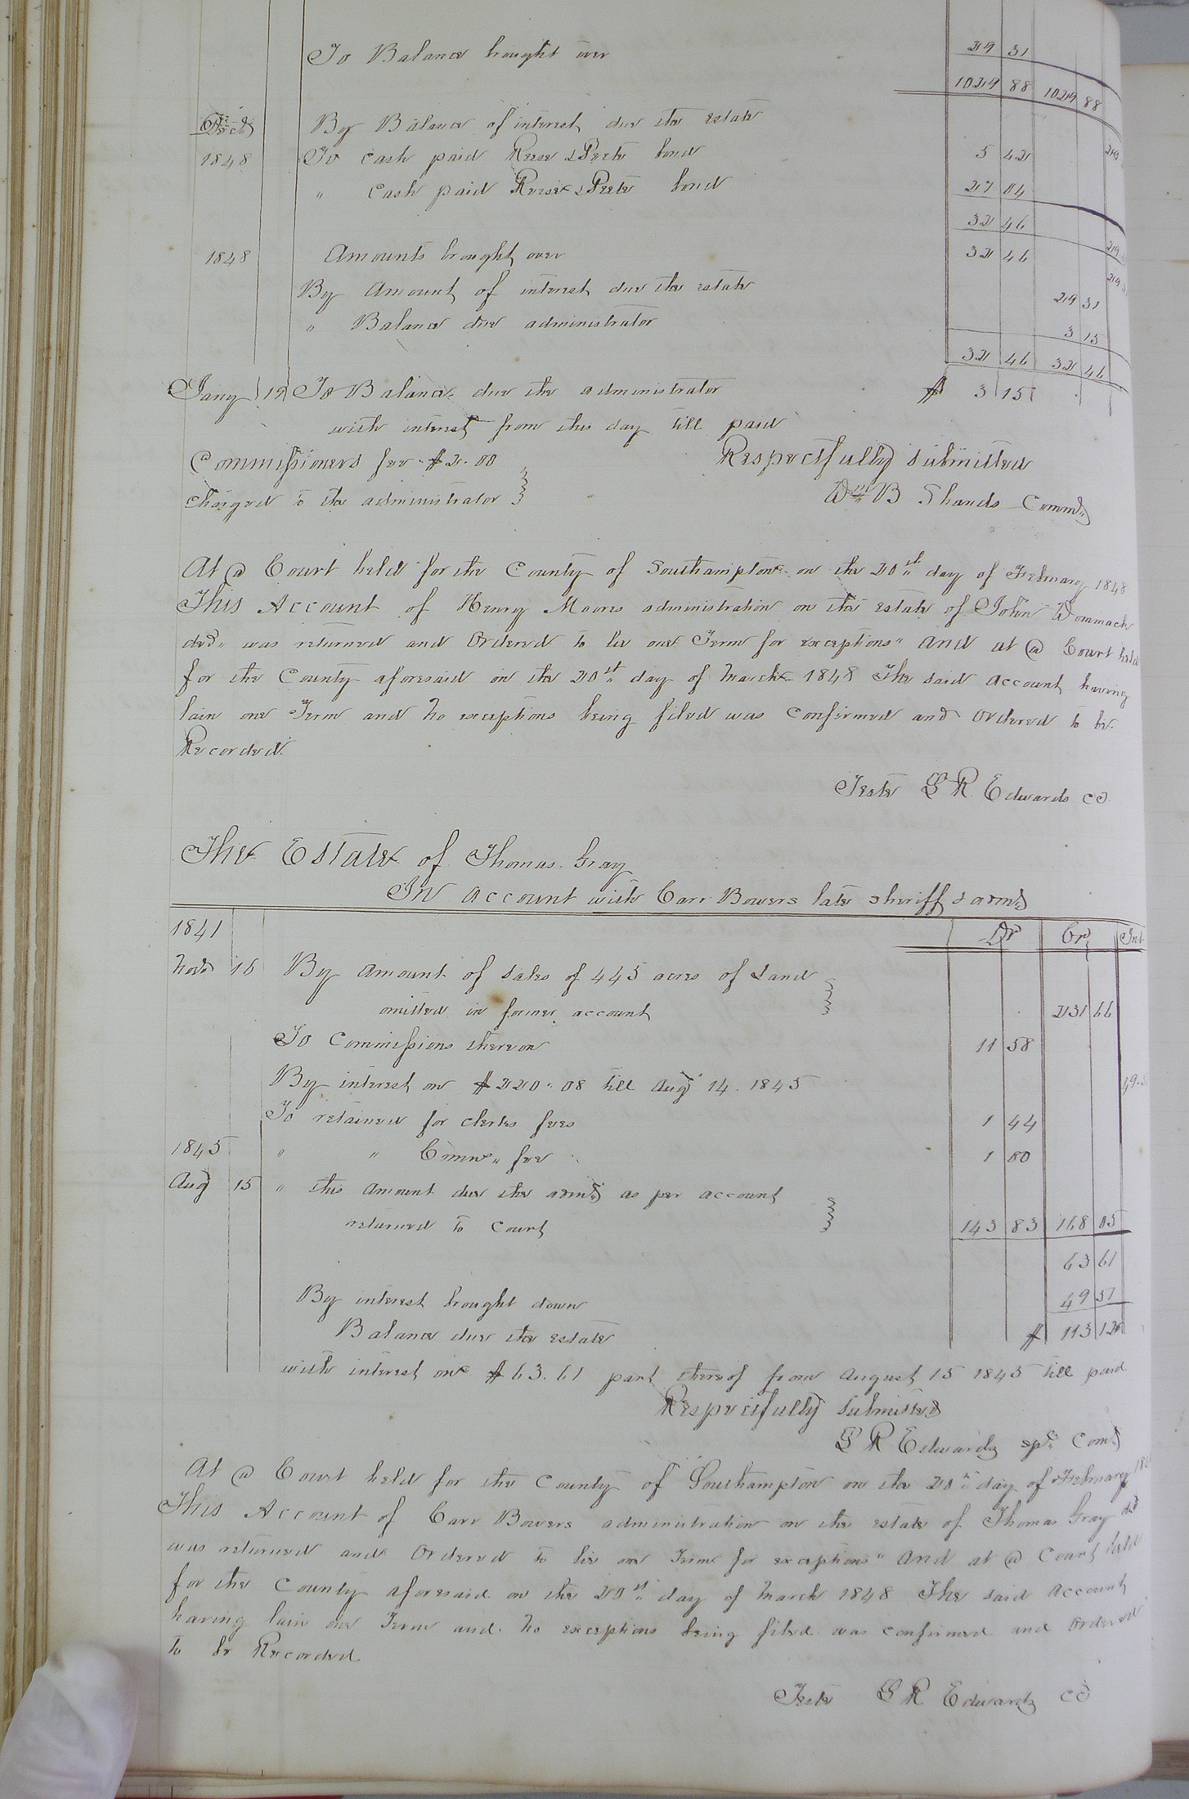 To Balance brought over 29 31
1029 88 1029 88
By Balance of interest due the estate 29
1848 To cash paid Reese & Peete bond 5 42
" cash paid Reese & Peete bond 27 04
32 46
1848 Amounts brought over 32 46
By Amount of interest due the estate 29 31
" Balance due administrator 3 15
32 46 32 46
Jany 19 To Balance due the administrator $ 3 15
with interest from this day till paid
Commissioners fee $2.00 Respectfully submitted
charged to the administrator Wm B Shands Commr
At a Court held for the County of Southampton on the 20th day of February 1848
This Account of Henry Moores administration on the estate of John Wommack
decd was returned and Ordered to lie one Term for exceptions" And at a Court held
for the County aforesaid on the 20th day of March 1848 The said account having
lain one Term and no exceptions being filed was confirmed and Ordered to be
Recorded.
Teste L R Edwards cc
The Estate of Thomas Gray
In account with Carr Bowers late sheriff & admr
1841 Dr Cr Int
Novr 16 By amount of sales of 445 acres of Land
omitted in former account 231 66
To Commissions thereon 11 58
By interest on $220.08 till Augt 14. 1845 49.
To retained for clerks fees 1 44
1845 " " Commr fee 1 80
Aug 15 " this amount due the admr as per account
returned to Court 143 83 168 05
63 61
By interest brought down 49 51
Balance due the estate $ 113 12
with interest on $63.61 part thereof from August 15 1845 till paid
Respectfully submitted
L R Edwards spl. Comr
At a Court held for the County of Southampton on the 20th day of February 18
This Account of Carr Bowers administration on the estate of Thomas Gray decd
was returned and Ordered to lie one Term for exceptions" And at a Court held
for the County aforesaid on the 20th day of March 1848 The said account
having lain one Term and no exceptions being filed was confirmed and Ordered
to be Recorded
Teste L R Edwards cc